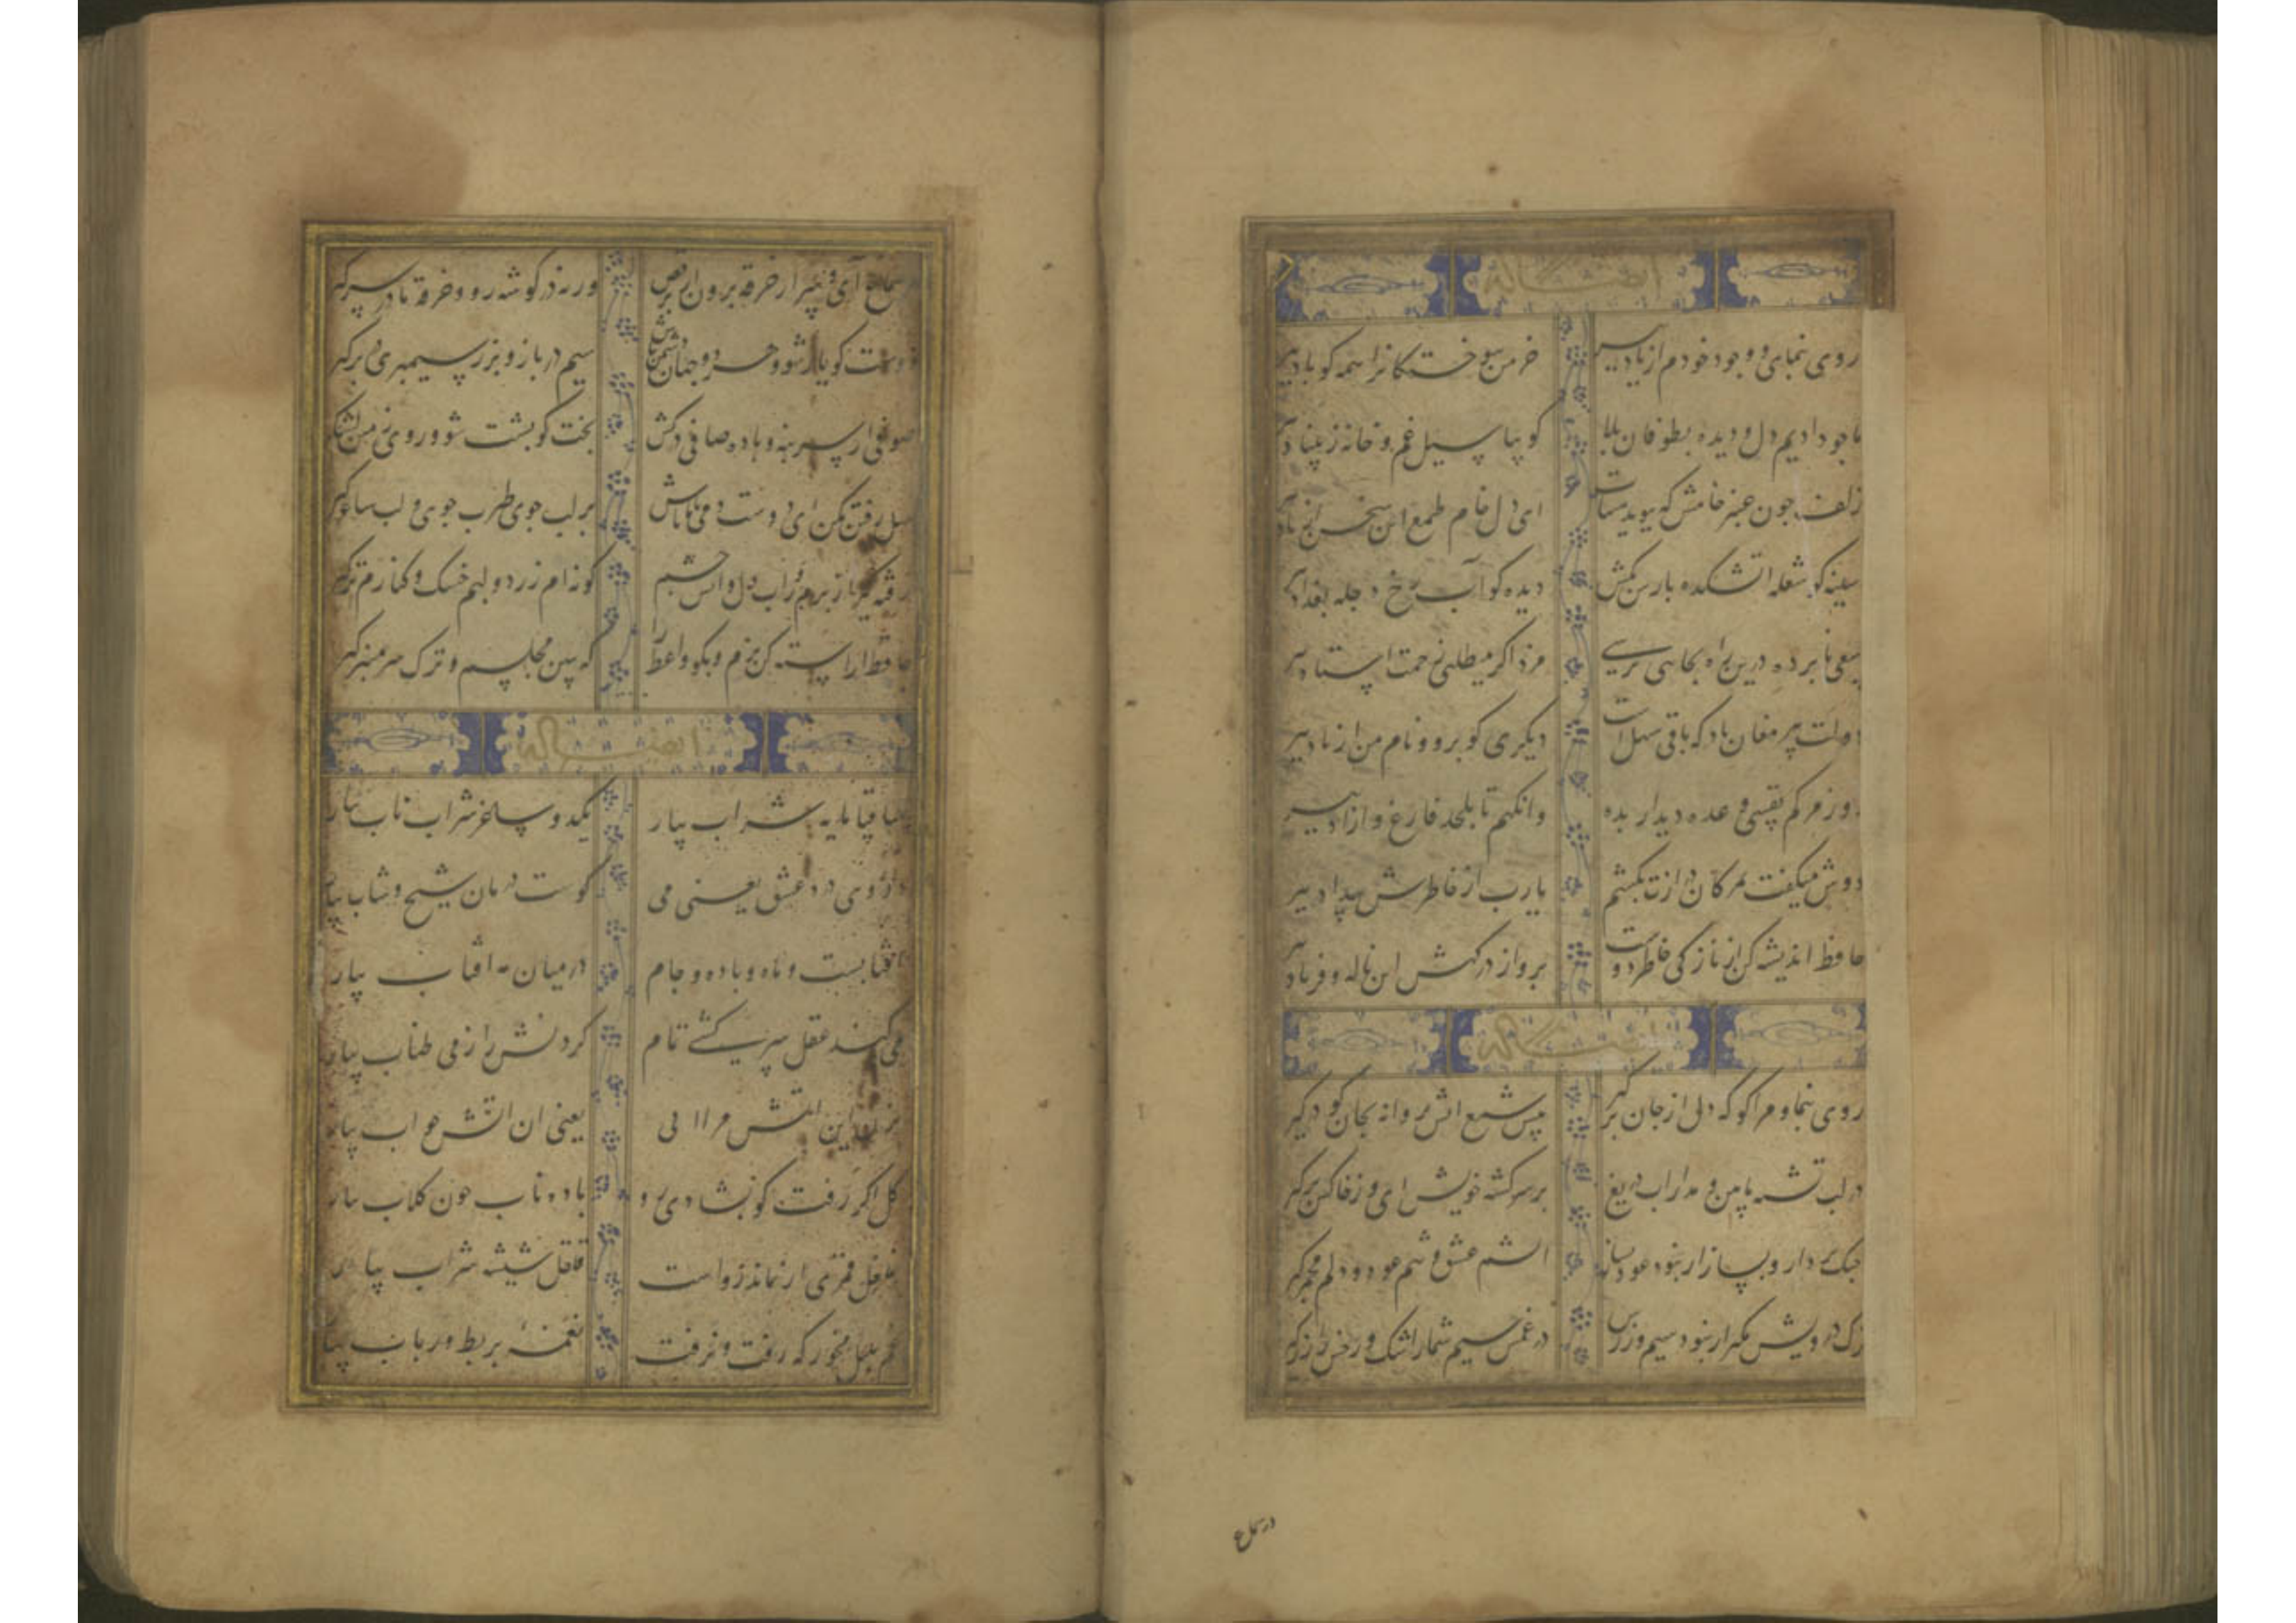 ایضا له
روی نمای و وجود خودم از یاد ببر خرمن سوختکانرا همه کو باد ببر
ما جو دادیم دل و دیده بطوفان بلا کو بیا سیل غم و خانه ز بنیاد ببر
زلف جون عنبر خامش که ببوید هیهات ای دل خام طمع این سخن از یاد ببر
سینه کو شعله اتشکده بارس بکش دیده کو آب رخ دجله بغداد ببر
سعی نابرده درین راه بجایی نرسی مزد اکر میطلبی زحمت استاد ببر
دولت پیر مغان باد که باقی سهل است دیکری کو برو و نام من از یاد ببر
روز مرکم نفسی وعده دیدار بده وانکهم تا بلحد فارغ و ازاد ببر
دوش میکفت بمژکان درازت بکشم یارب از خاطرش بیداد ببر
حافظ اندیشه کن از نازکی خاطر دوست برو از درکهش این ناله و فریاد ببر
ایضا له
روی بنما و مرا کو که دل از جان برکیر پیش شمع اتش پروانه بجان کو درکیر
در لب تشنه ما بین و مدار اب دریغ بر سر کشته خویش ای و ز خاکش برکیر
جنک بردار و بساز ار نبود عود باز اتشم عشق و تنم عود و دلم مجمر کیر
ترک درویش مکیر ار نبود سیم و زرش در غمت سیم شمار اشک و رخش را زر کیر
در سماع
در سماع آی و ز سر خرقه برون ار و برقص ورنه در کوشه رو و خرقه ما در سر کیر
دوست کو یار شو و هر دو جهان دشمن باش بخت کو بشت شو و روی زمین لشکر کیر
صوف از سر بنه و باده صافی درکش سیم در باز و بزر سیمبری در بر کیر
میل رفتن مکن ای دوست دمی با ما باش بر لب جوی طرب جوی و لب ساغر کیر
رفته کیر از برم و ز اب دل و اتش جشم کونه ام زرد و لبم خشک و کنارم تر کیر
حافظ اراسته کن بزم و بکو واعظ را که ببین مجلسم و ترک سر منبر کیر
ایضا له
ساقیا مایه شراب بیار یکدو ساغر شراب ناب بیار
داروی درد عشق یعنی می کوست درمان شیخ و شاب بیار
افتابست و ماه و باده و جام در میان مه افتاب بیار
می کند عقل سرکشی تمام کردنش را ز می طناب بیار
بزن این اتش مرا ابی یعنی ان اتش جو اب بیار
کل اکر رفت کو بشادی رو باده ناب جون کلاب بیار
غلغل قمری ار نماند رواست قلقل شیشه شراب بیار
غم بلبل مخور که رفت و نرفت نغمه بربط و رباب بیار